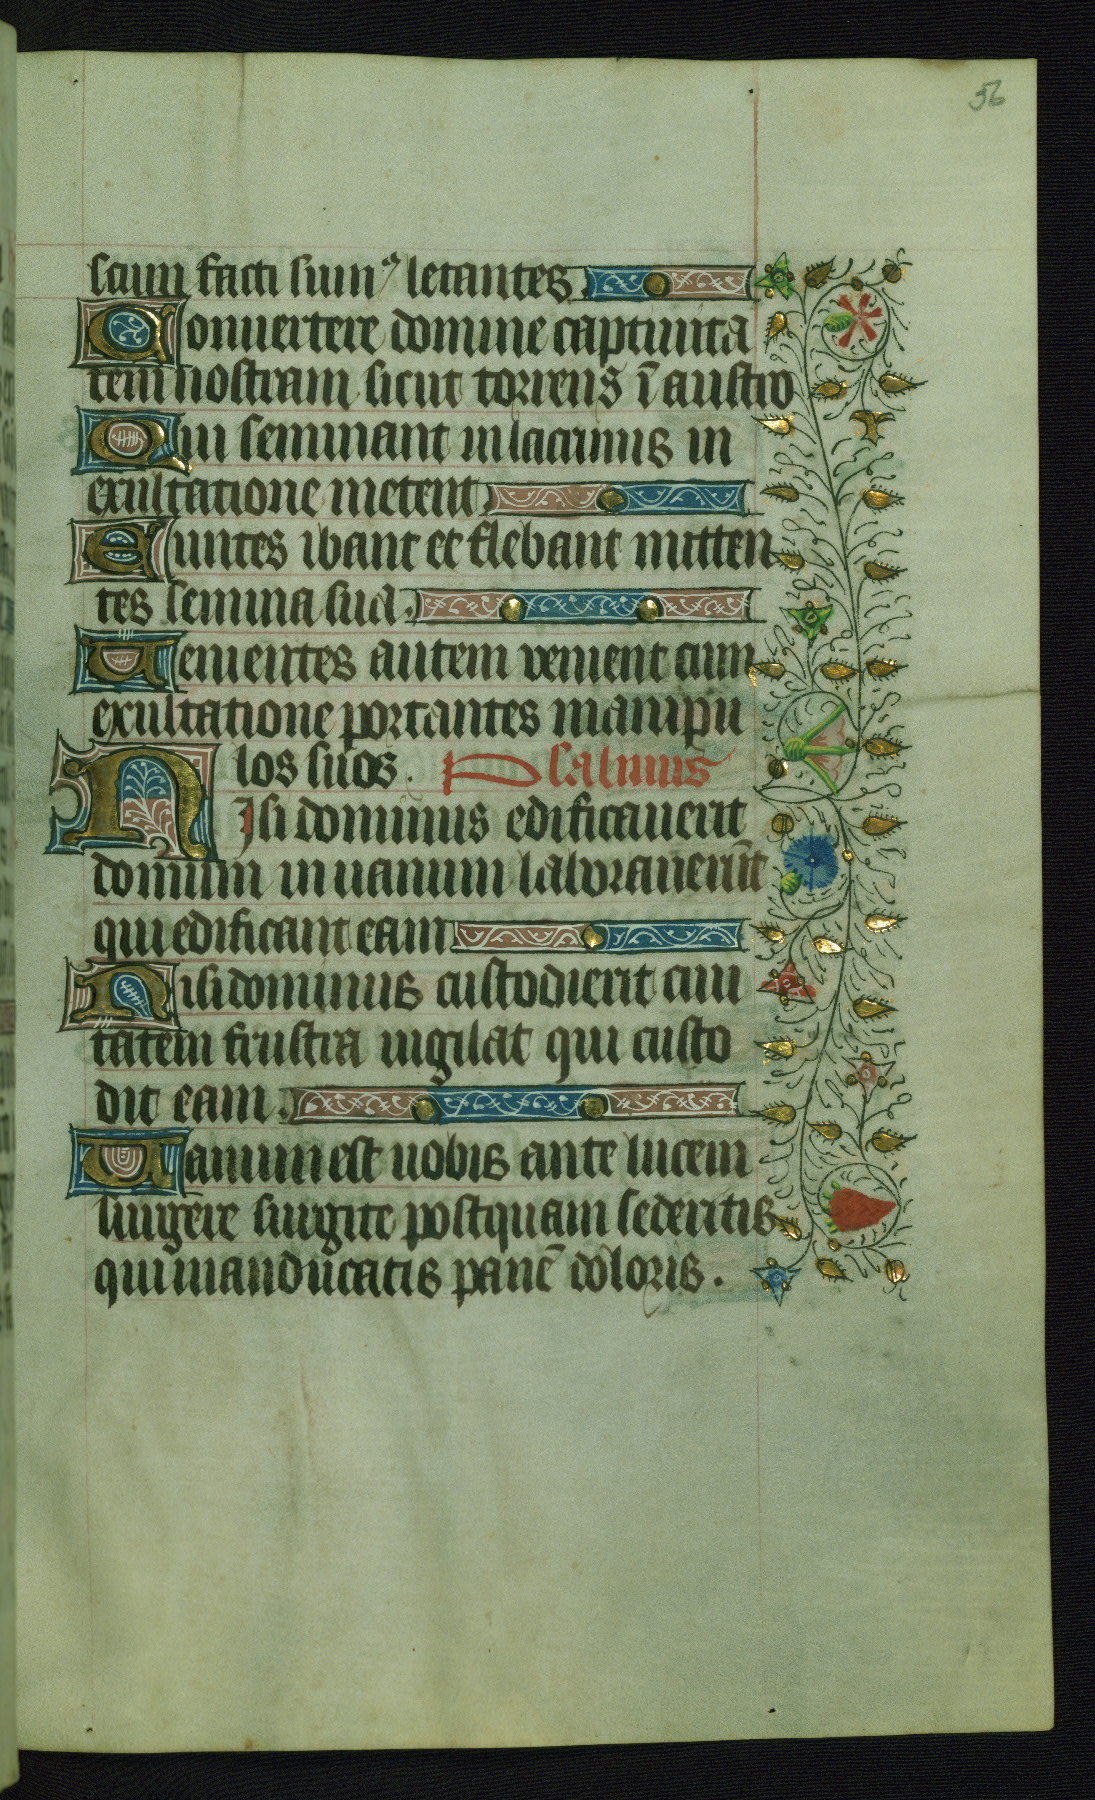 56
scum facti sumꝰ letantes
Conuertere domine captiuita
tem nostram sicut torrens ī austro
Qui seminant in lacrimis in
exultatione metent
Euntes ibant et flebant mitten
tes semina sua.
Uenientes autem venient cum
exultatione portantes manipu
los suos. Psalmus
Nisi dominus edificauerit
domum in uanum laborauerūt
qui edificant eam
Nisi dominus custodierit ciui
tatem frustra uigilat qui custo
dit eam.
Uanum est uobis ante lucem
surgere surgite postquam sederitis
qui manducatis panē doloris.